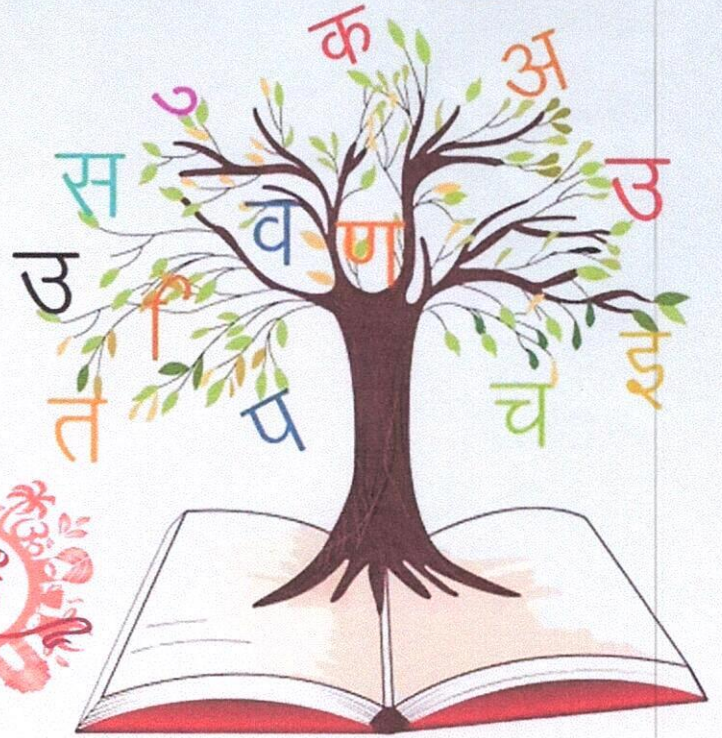 क
अ
ु
स
उ
व
ण
उ
ि
इ
त
प
च
ॐ